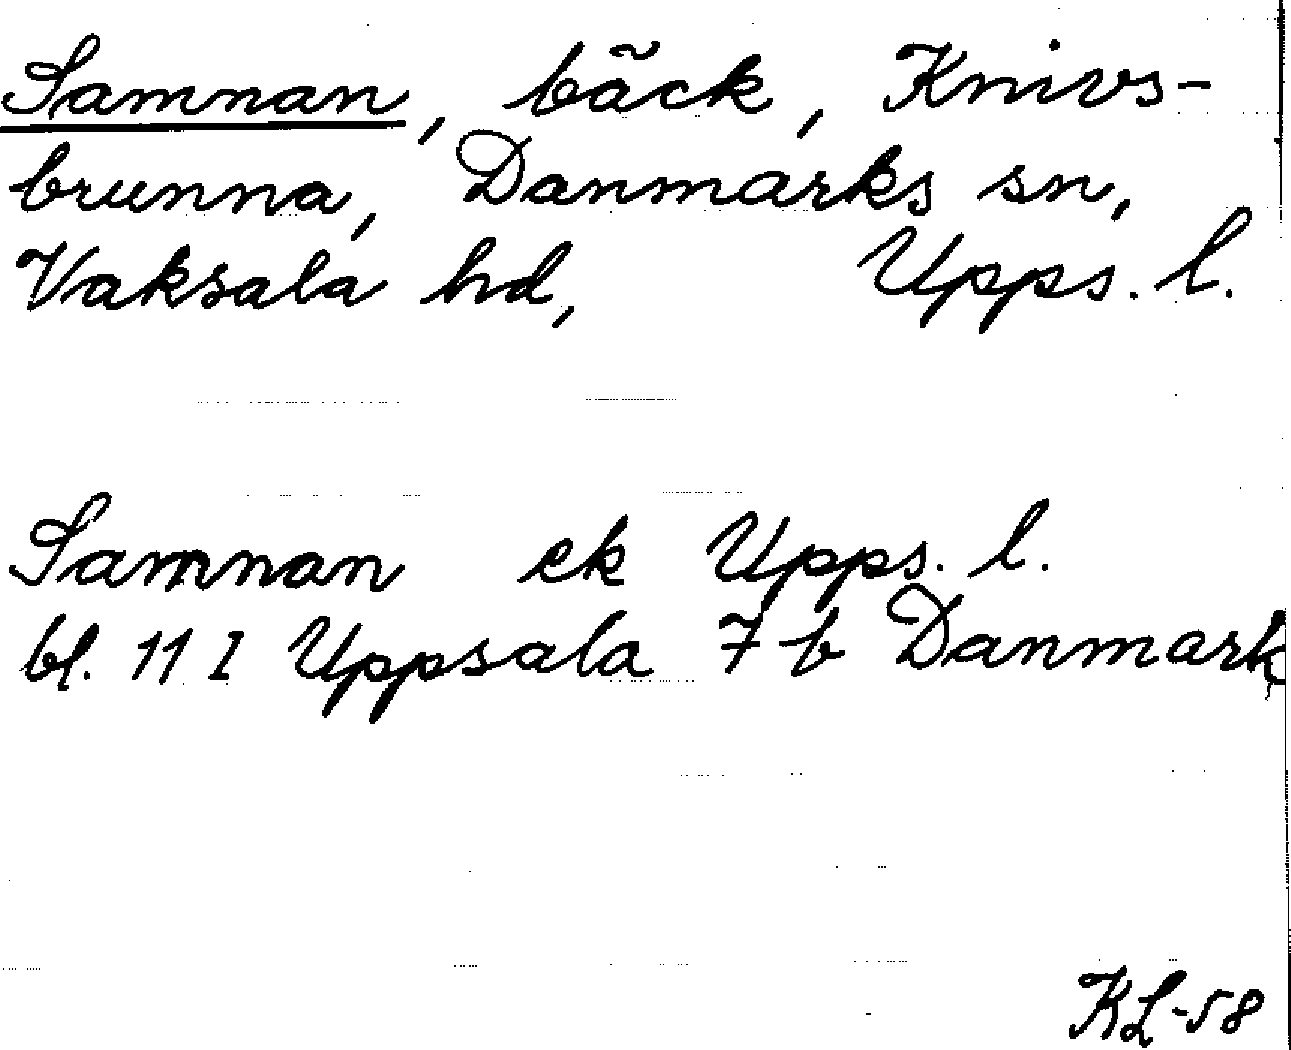 Samnan, bäck, Knivs-
brunna, Danmarks sn,
Vaksala hd, Upps. l.
Samnan ek Upps. l.
bl. 11 I Uppsala 7 b Danmark
KL-58